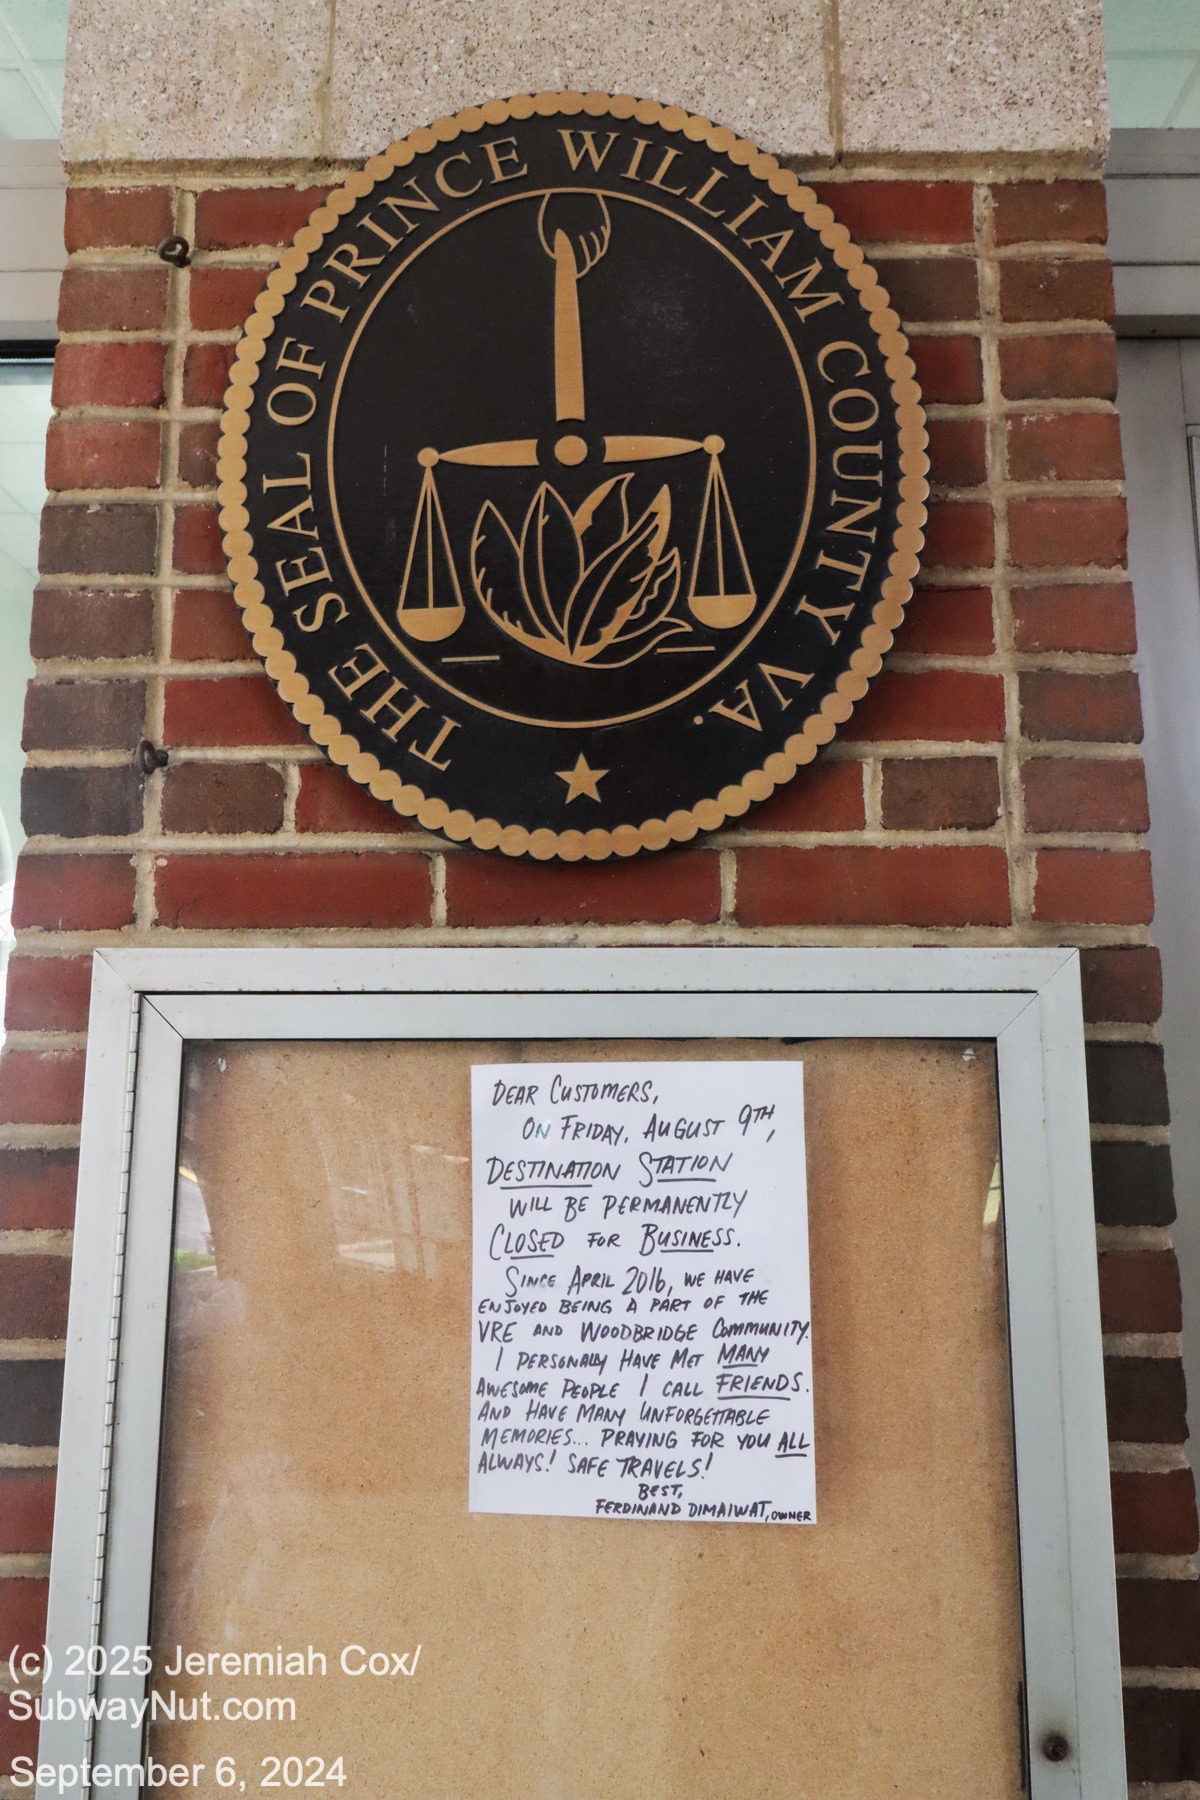 THE SEAL OF PRINCE WILLIAM COUNTY VA.
DEAR CUSTOMERS,
ON FRIDAY, AUGUST 9TH,
DESTINATION STATION
WILL BE PERMANENTLY
CLOSED FOR BUSINESS.
SINCE APRIL 2016, WE HAVE
ENJOYED BEING A PART OF THE
VRE AND WOODBRIDGE COMMUNITY.
I PERSONALLY HAVE MET MANY
AWESOME PEOPLE I CALL FRIENDS.
AND HAVE MANY UNFORGETTABLE
MEMORIES... PRAYING FOR YOU ALL
ALWAYS! SAFE TRAVELS!
BEST,
FERDINAND DIMAIWAT, OWNER
(c) 2025 Jeremiah Cox/
SubwayNut.com
September 6, 2024